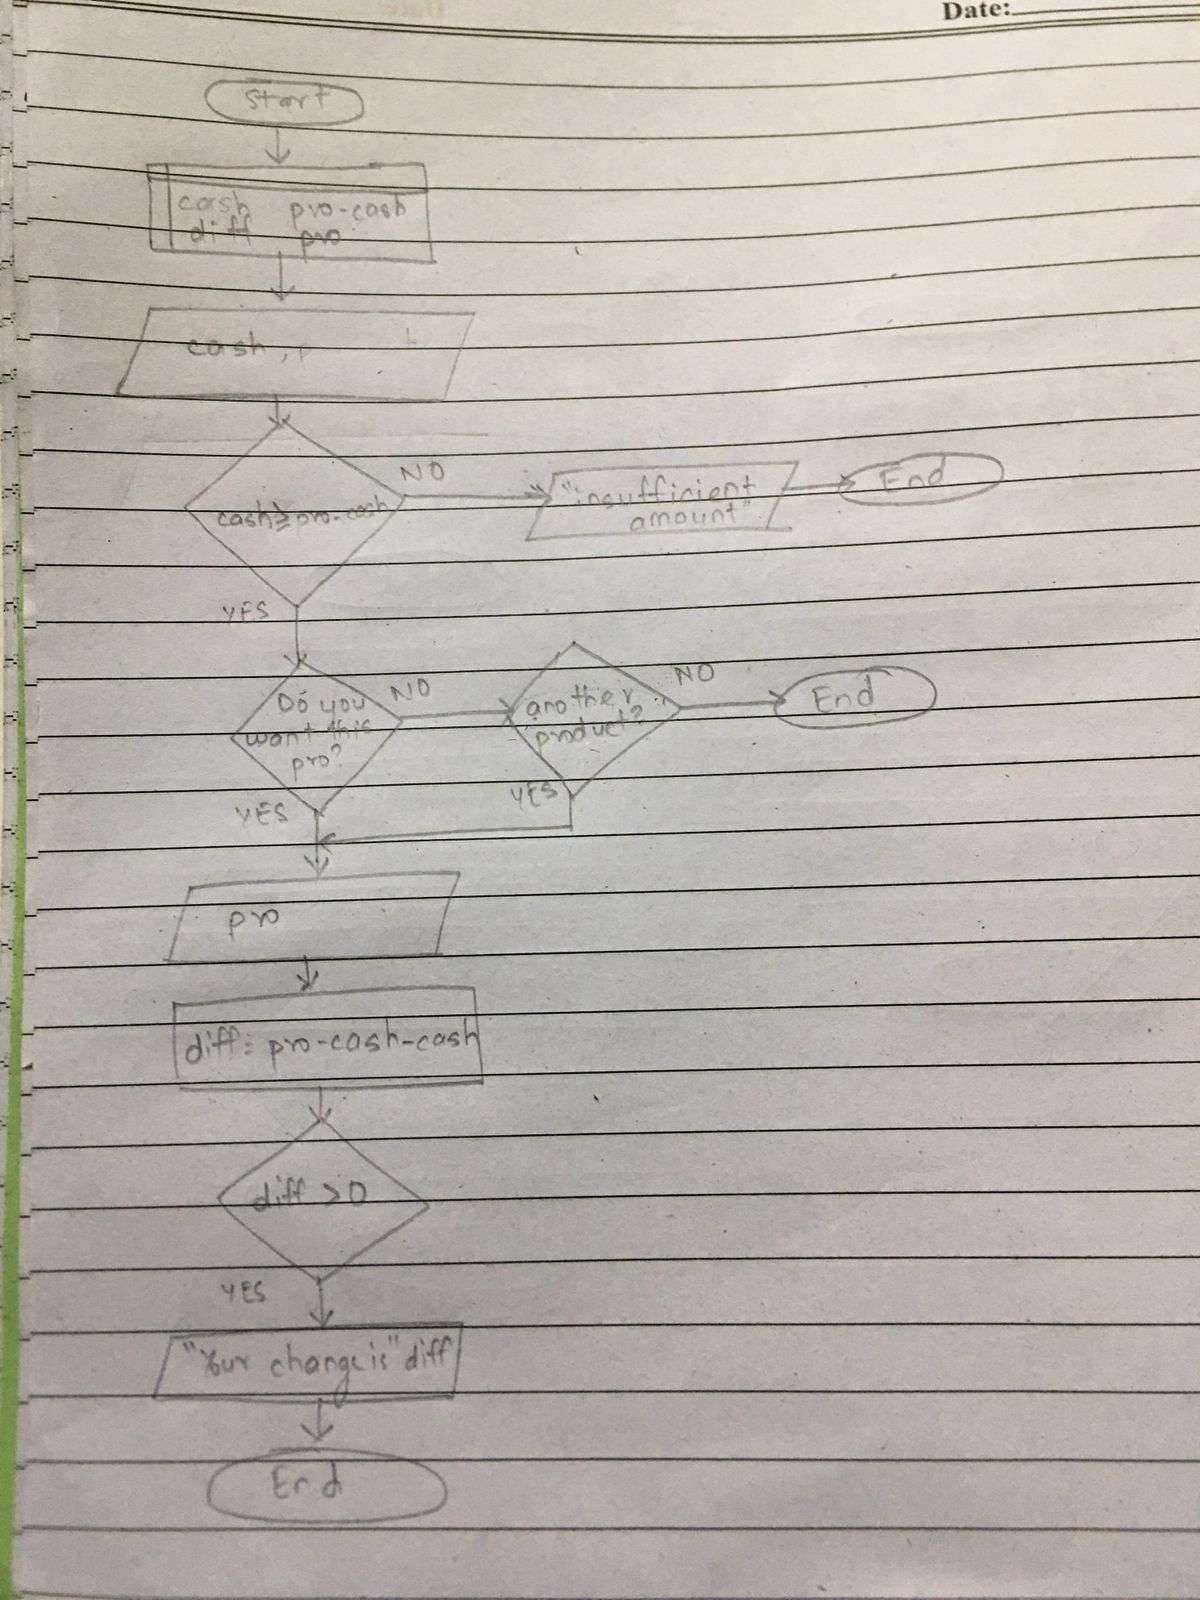 Date:
Start
cash pro-cash
diff pro
cash,
cash≥pro-cash
NO
"insufficient
amount"
End
YES
Do you
want this
pro?
NO
another
product?
NO
End
YES
YES
pro
diff = pro-cash-cash
diff >0
YES
"Your change is" diff
End